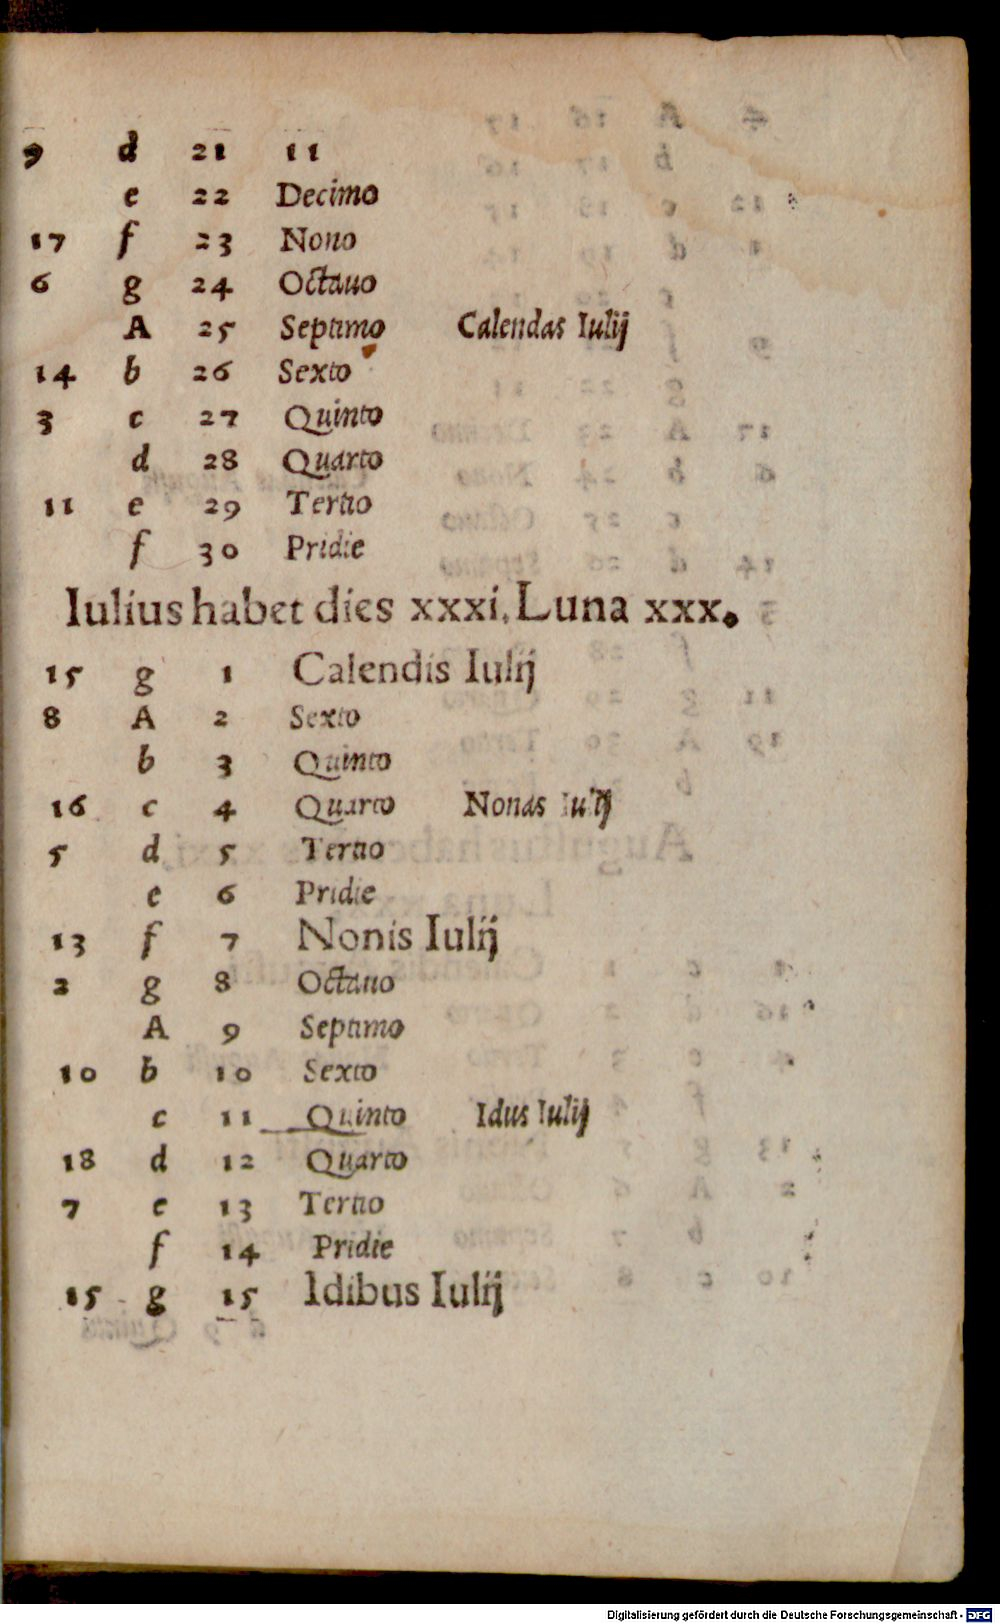 9 d 21 11
e 22 Decimo
17 f 23 Nono
6 g 24 Octauo
A 25 Septimo Calendas Iulij
14 b 26 Sexto
3 c 27 Quinto
d 28 Quarto
11 e 29 Tertio
f 30 Pridie
Iulius habet dies xxxi. Luna xxx.
15 g 1 Calendis Iulij
8 A 2 Sexto
b 3 Quinto
16 c 4 Quarto Nonas Iulij
5 d 5 Tertio
e 6 Pridie
13 f 7 Nonis Iulij
2 g 8 Octauo
A 9 Septimo
10 b 10 Sexto
c 11 Quinto Idus Iulij
18 d 12 Quarto
7 e 13 Tertio
f 14 Pridie
15 g 15 Idibus Iulij
Digitalisierung gefördert durch die Deutsche Forschungsgemeinschaft - DFG